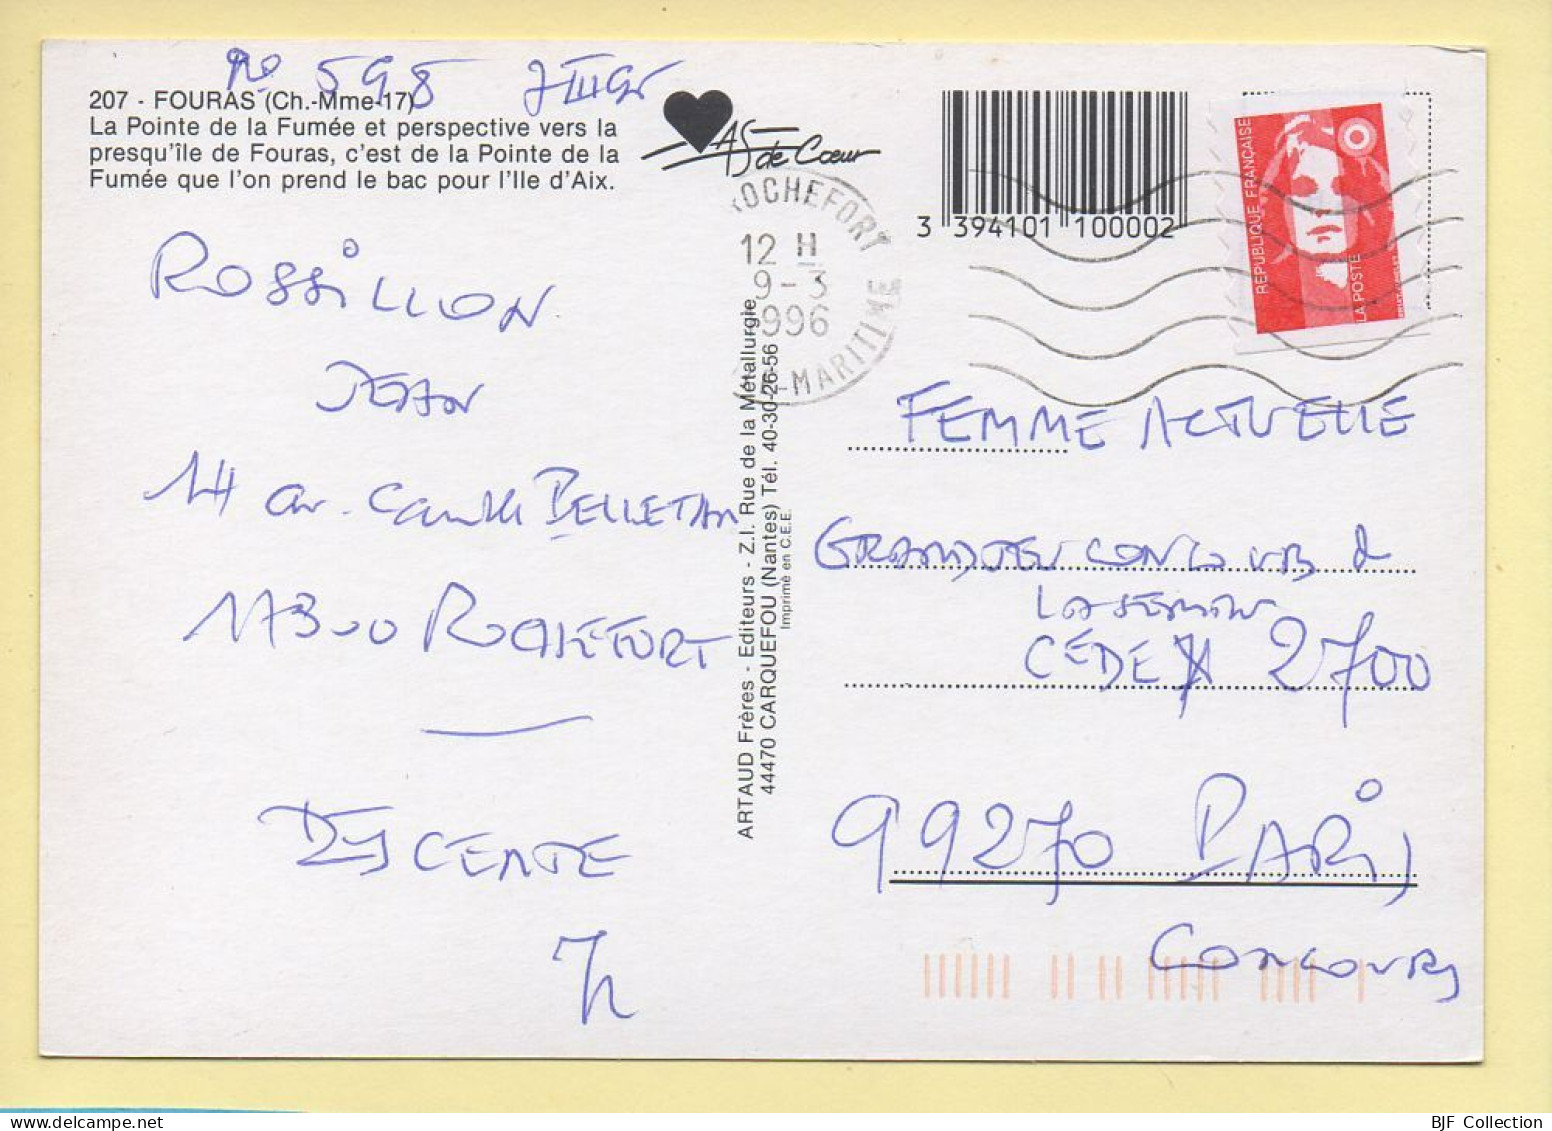 No 598 7 III 96
207 - FOURAS (Ch.-Mme-17)
La Pointe de la Fumée et perspective vers la
presqu'île de Fouras, c'est de la Pointe de la
Fumée que l'on prend le bac pour l'Ile d'Aix.
AS de Cœur
3 394101 100002
ROCHEFORT
12 H
9-3
1996
-MARITIME
REPUBLIQUE FRANÇAISE
LA POSTE
ROSSILLON
JEAN
14 av. Camille PELLETAN
17300 ROCHEFORT
DESCENTE
ARTAUD Frères - Editeurs - Z.I. Rue de la Métallurgie
44470 CARQUEFOU (Nantes) Tél. 40-30-26-56
Imprimé en C.E.E.
FEMME ACTUELLE
GRAND JEU CONCOURS de
LA SEMAINE
CÉDEX 2700
99270 PARIS
CONCOURS
BJF Collection